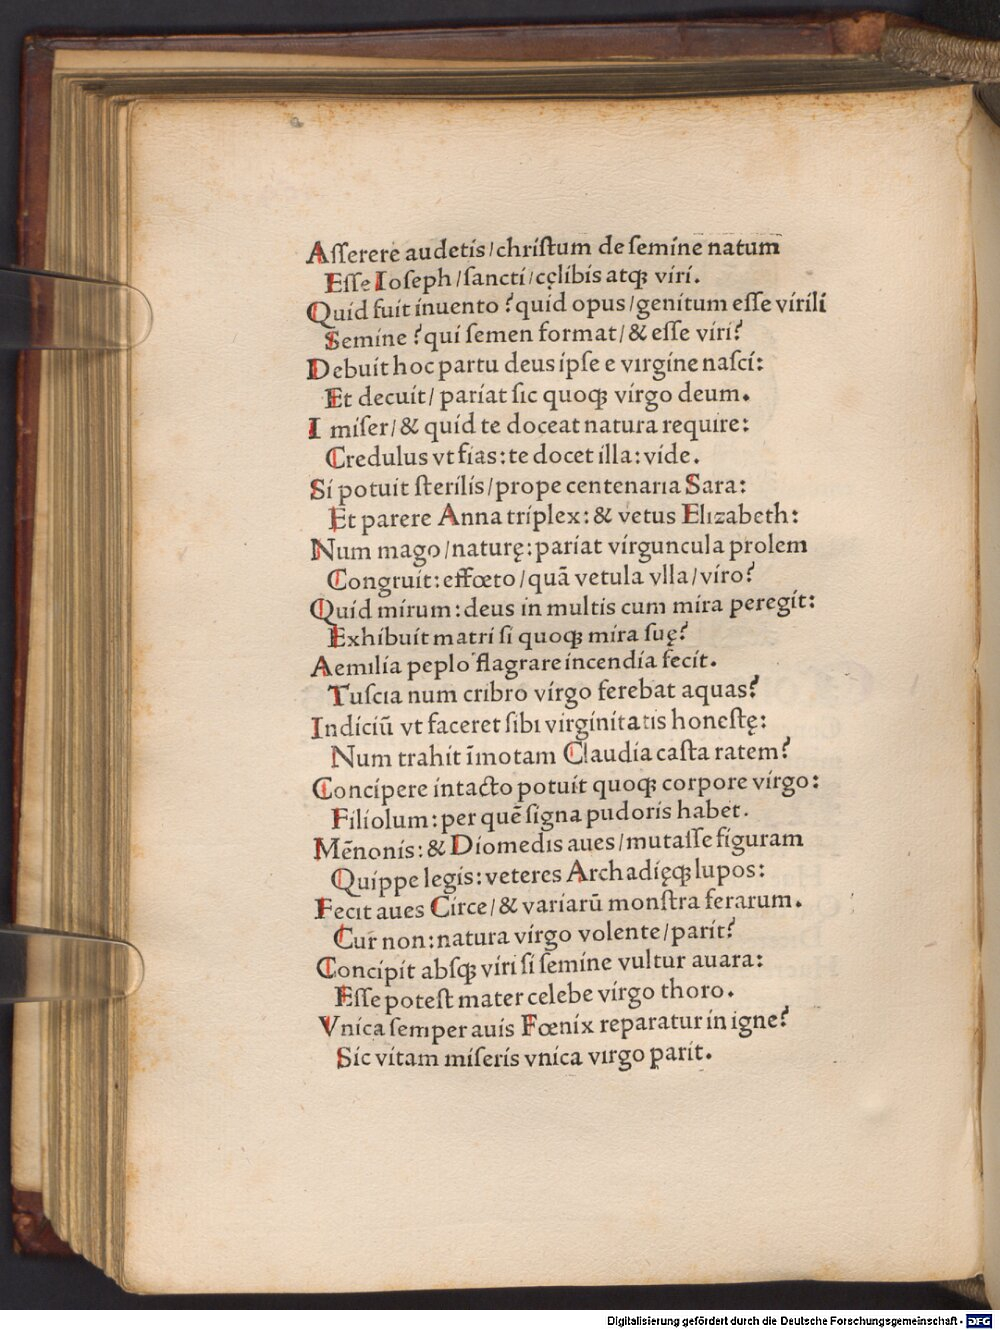 Aſſerere audetis/chriſtum de ſemine natum
Eſſe Ioſeph/ſancti/cęlibis atqꝫ viri.
Quid fuit inuento? quid opus/genitum eſſe virili
Semine? qui ſemen format/& eſſe viri?
Debuit hoc partu deus ipſe e virgine naſci:
Et decuit/ pariat ſic quoqꝫ virgo deum.
I miſer/& quid te doceat natura require:
Credulus vt fias: te docet illa: vide.
Si potuit ſterilis/prope centenaria Sara:
Et parere Anna triplex: & vetus Elizabeth:
Num mago/naturę: pariat virguncula prolem
Congruit: effœto/quā vetula vlla/viro?
Quid mirum: deus in multis cum mira peregit:
Exhibuit matri ſi quoqꝫ mira ſuę?
Aemilia peplo flagrare incendia fecit.
Tuſcia num cribro virgo ferebat aquas?
Indiciū vt faceret ſibi virginitatis honeſtę:
Num trahit īmotam Claudia caſta ratem?
Concipere intacto potuit quoqꝫ corpore virgo:
Filiolum: per quē ſigna pudoris habet.
Mēnonis: & Diomedis aues/mutaſſe figuram
Quippe legis: veteres Archadięqꝫ lupos:
Fecit aues Circe/& variarū monſtra ferarum.
Cur non: natura virgo volente/parit?
Concipit abſqꝫ viri ſi ſemine vultur auara:
Eſſe poteſt mater celebe virgo thoro.
Vnica ſemper auis Fœnix reparatur in igne?
Sic vitam miſeris vnica virgo parit.
Digitalisierung gefördert durch die Deutsche Forschungsgemeinschaft - DFG